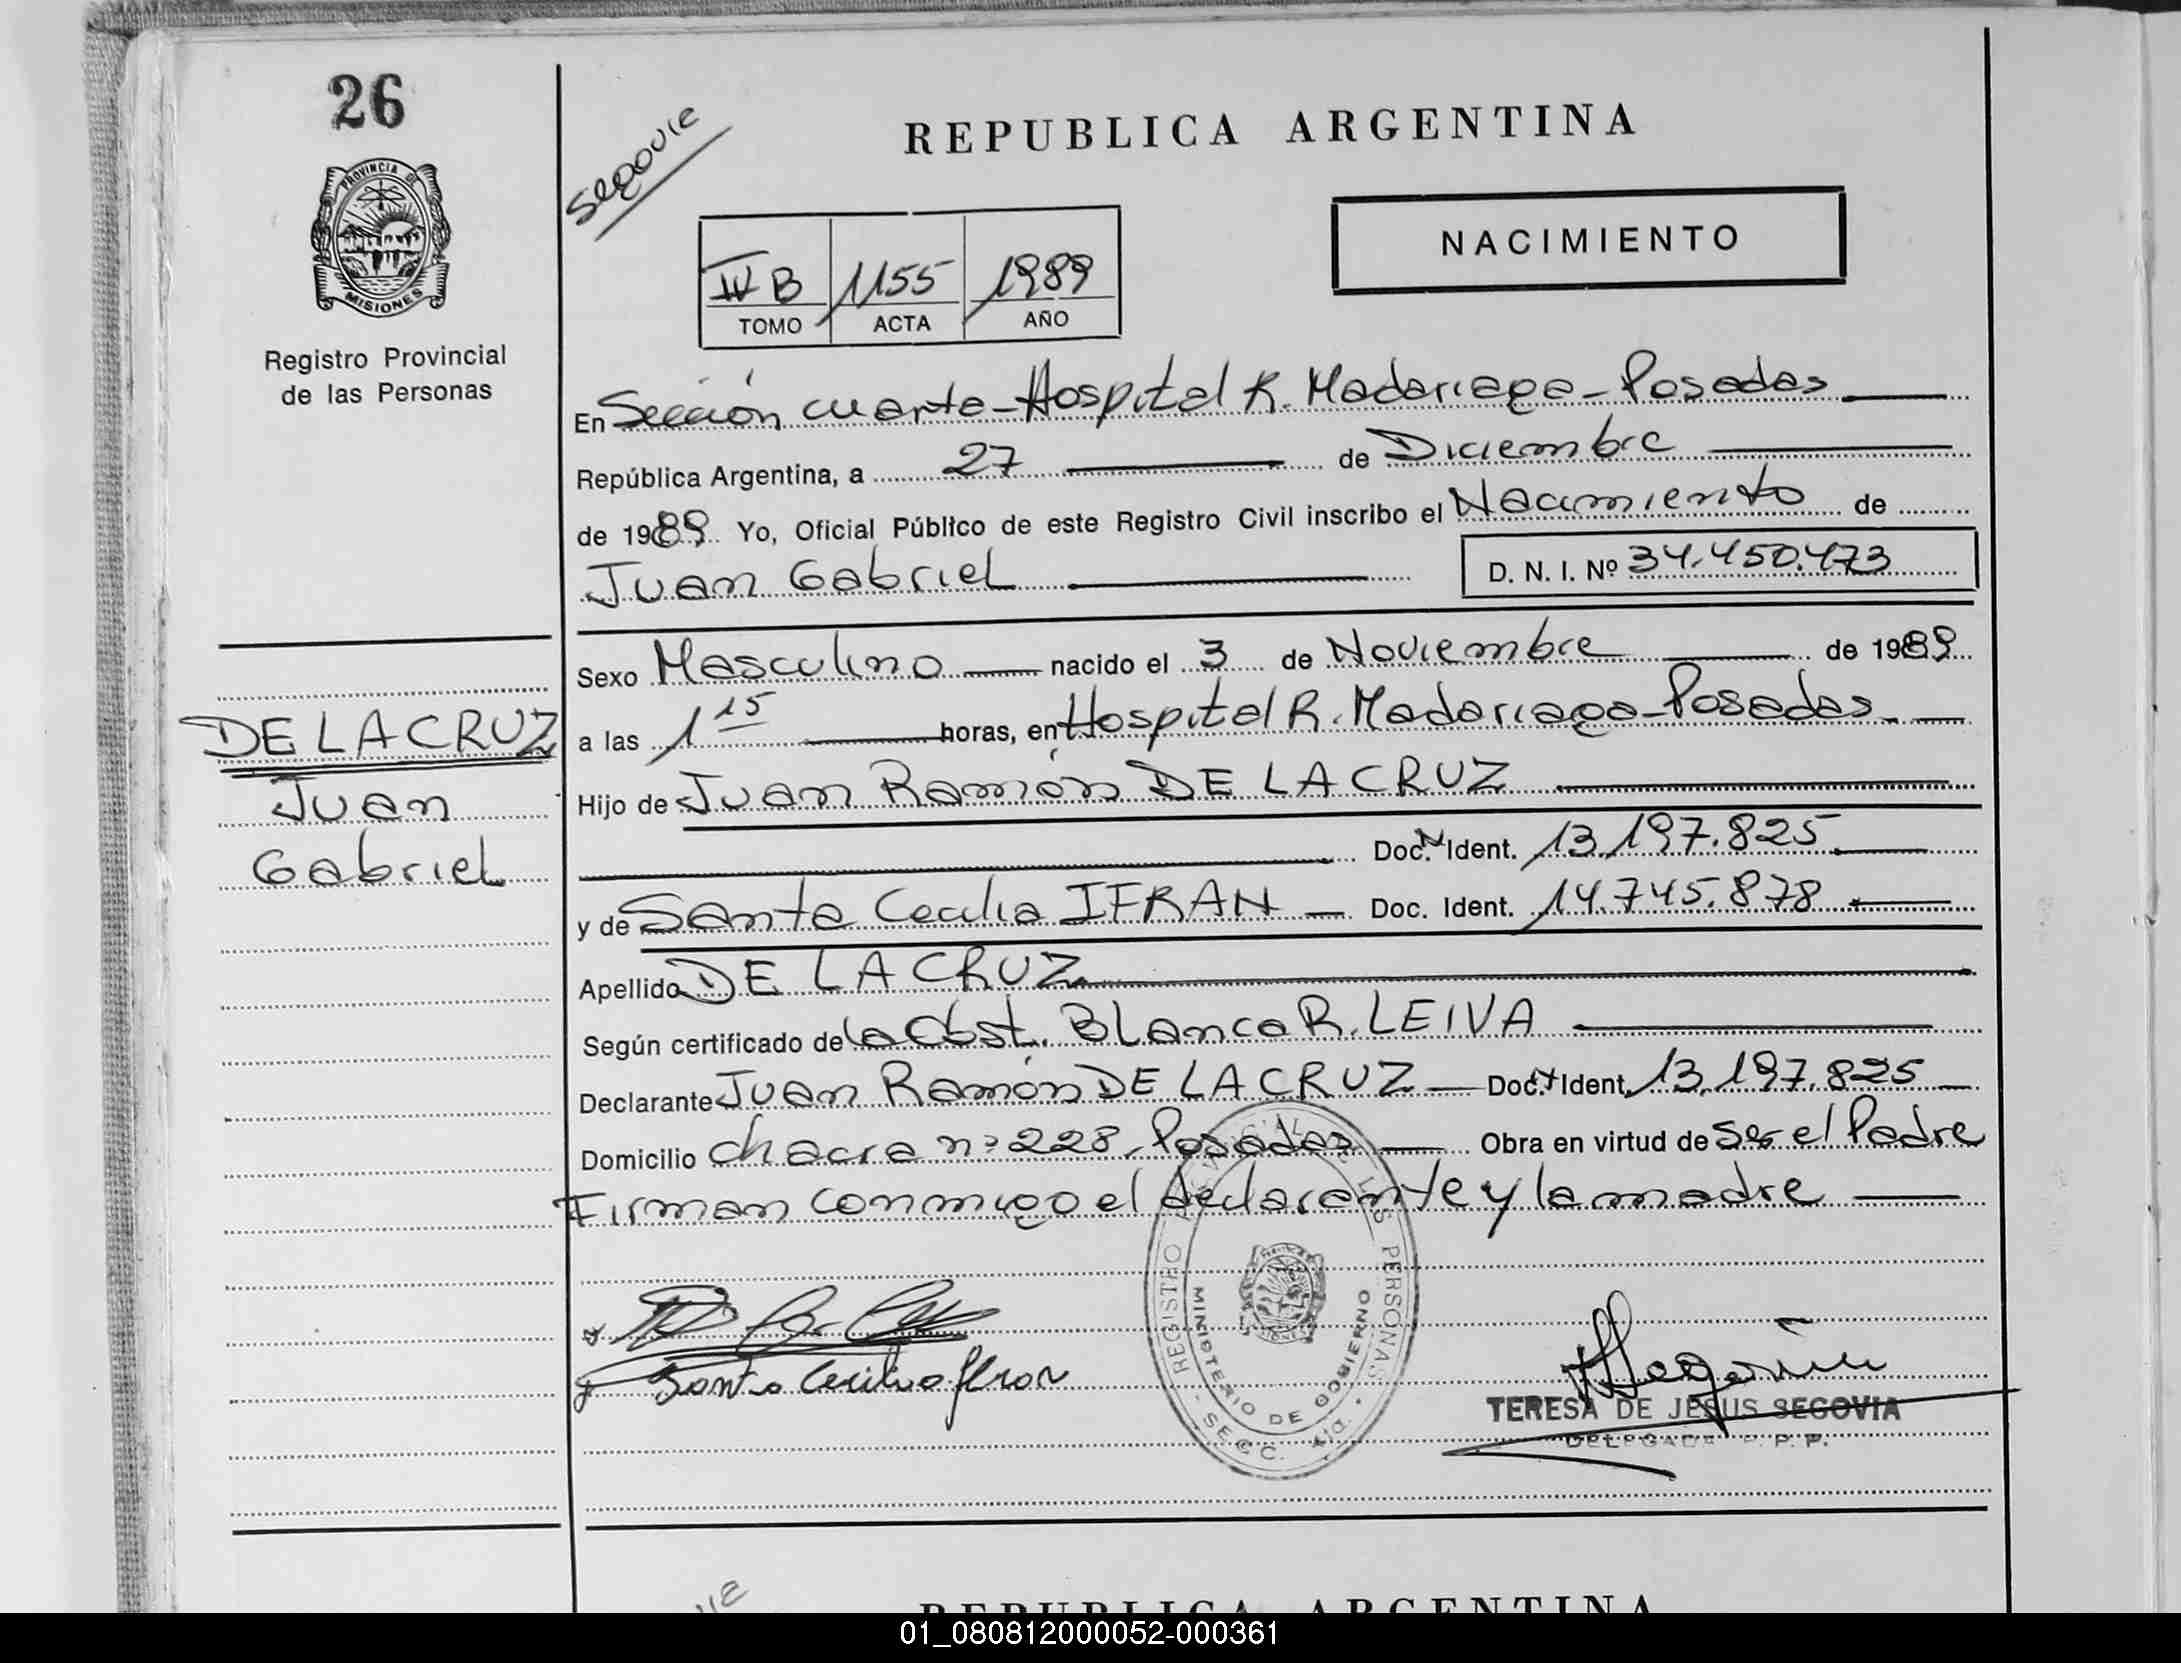 26
PROVINCIA DE
MISIONES
Registro Provincial
de las Personas
Segovia
REPUBLICA ARGENTINA
NACIMIENTO
IV B 1155 1989
TOMO ACTA AÑO
En Sección cuarta - Hospital R. Madariaga - Posadas
República Argentina, a 27 de Diciembre
de 1989 Yo, Oficial Público de este Registro Civil inscribo el Nacimiento de
Juan Gabriel D. N. I. Nº 34.450.473
Sexo Masculino nacido el 3 de Noviembre de 1989
a las 1 15 horas, en Hospital R. Madariaga - Posadas
Hijo de Juan Ramón DE LA CRUZ
Doc. N Ident. 13.197.825
y de Santa Cecilia IFRAN Doc. Ident. 14.745.878
Apellido DE LA CRUZ
Según certificado de la Obst. Blanca R. LEIVA
Declarante Juan Ramón DE LA CRUZ Doc. N Ident. 13.197.825
Domicilio chacra nº 228 - Posadas Obra en virtud de Ser el Padre
Firman conmigo el declarante y la madre
DE LA CRUZ
Juan
Gabriel
Santa Cecilia Ifran
REGISTRO PROVINCIAL DE LAS PERSONAS
MINISTERIO DE GOBIERNO
SECC. 4ta.
Segovia
TERESA DE JESUS SEGOVIA
DELEGADA R. P. P.
REPUBLICA ARGENTINA
01_080812000052-000361